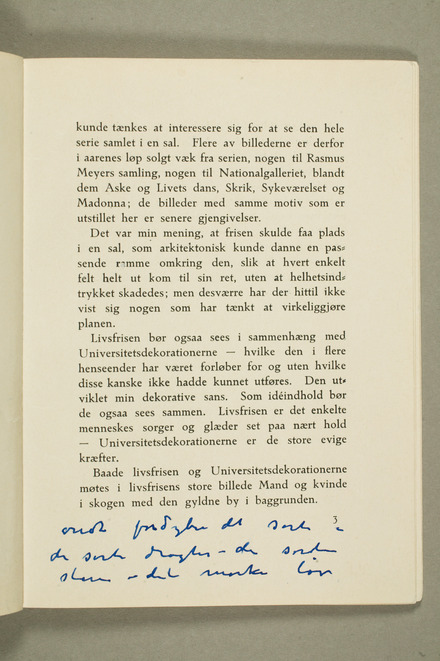 kunde tænkes at interessere sig for at se den hele
serie samlet i en sal. Flere av billederne er derfor
i aarenes løp solgt væk fra serien, nogen til Rasmus
Meyers samling, nogen til Nationalgalleriet, blandt
dem Aske og Livets dans, Skrik, Sykeværelset og
Madonna; de billeder med samme motiv som er
utstillet her er senere gjengivelser.
Det var min mening, at frisen skulde faa plads
i en sal, som arkitektonisk kunde danne en pas-
sende ramme omkring den, slik at hvert enkelt
felt helt ut kom til sin ret, uten at helhetsind-
trykket skadedes; men desværre har der hittil ikke
vist sig nogen som har tænkt at virkeliggjøre
planen.
Livsfrisen bør ogsaa sees i sammenhæng med
Universitetsdekorationerne — hvilke den i flere
henseender har været forløber for og uten hvilke
disse kanske ikke hadde kunnet utføres. Den ut-
viklet min dekorative sans. Som idéindhold bør
de ogsaa sees sammen. Livsfrisen er det enkelte
menneskes sorger og glæder set paa nært hold
— Universitetsdekorationerne er de store evige
kræfter.
Baade livsfrisen og Universitetsdekorationerne
møtes i livsfrisens store billede Mand og kvinde
i skogen med den gyldne by i baggrunden.
3
det sorte
de sorte dragter – de
– det mørke